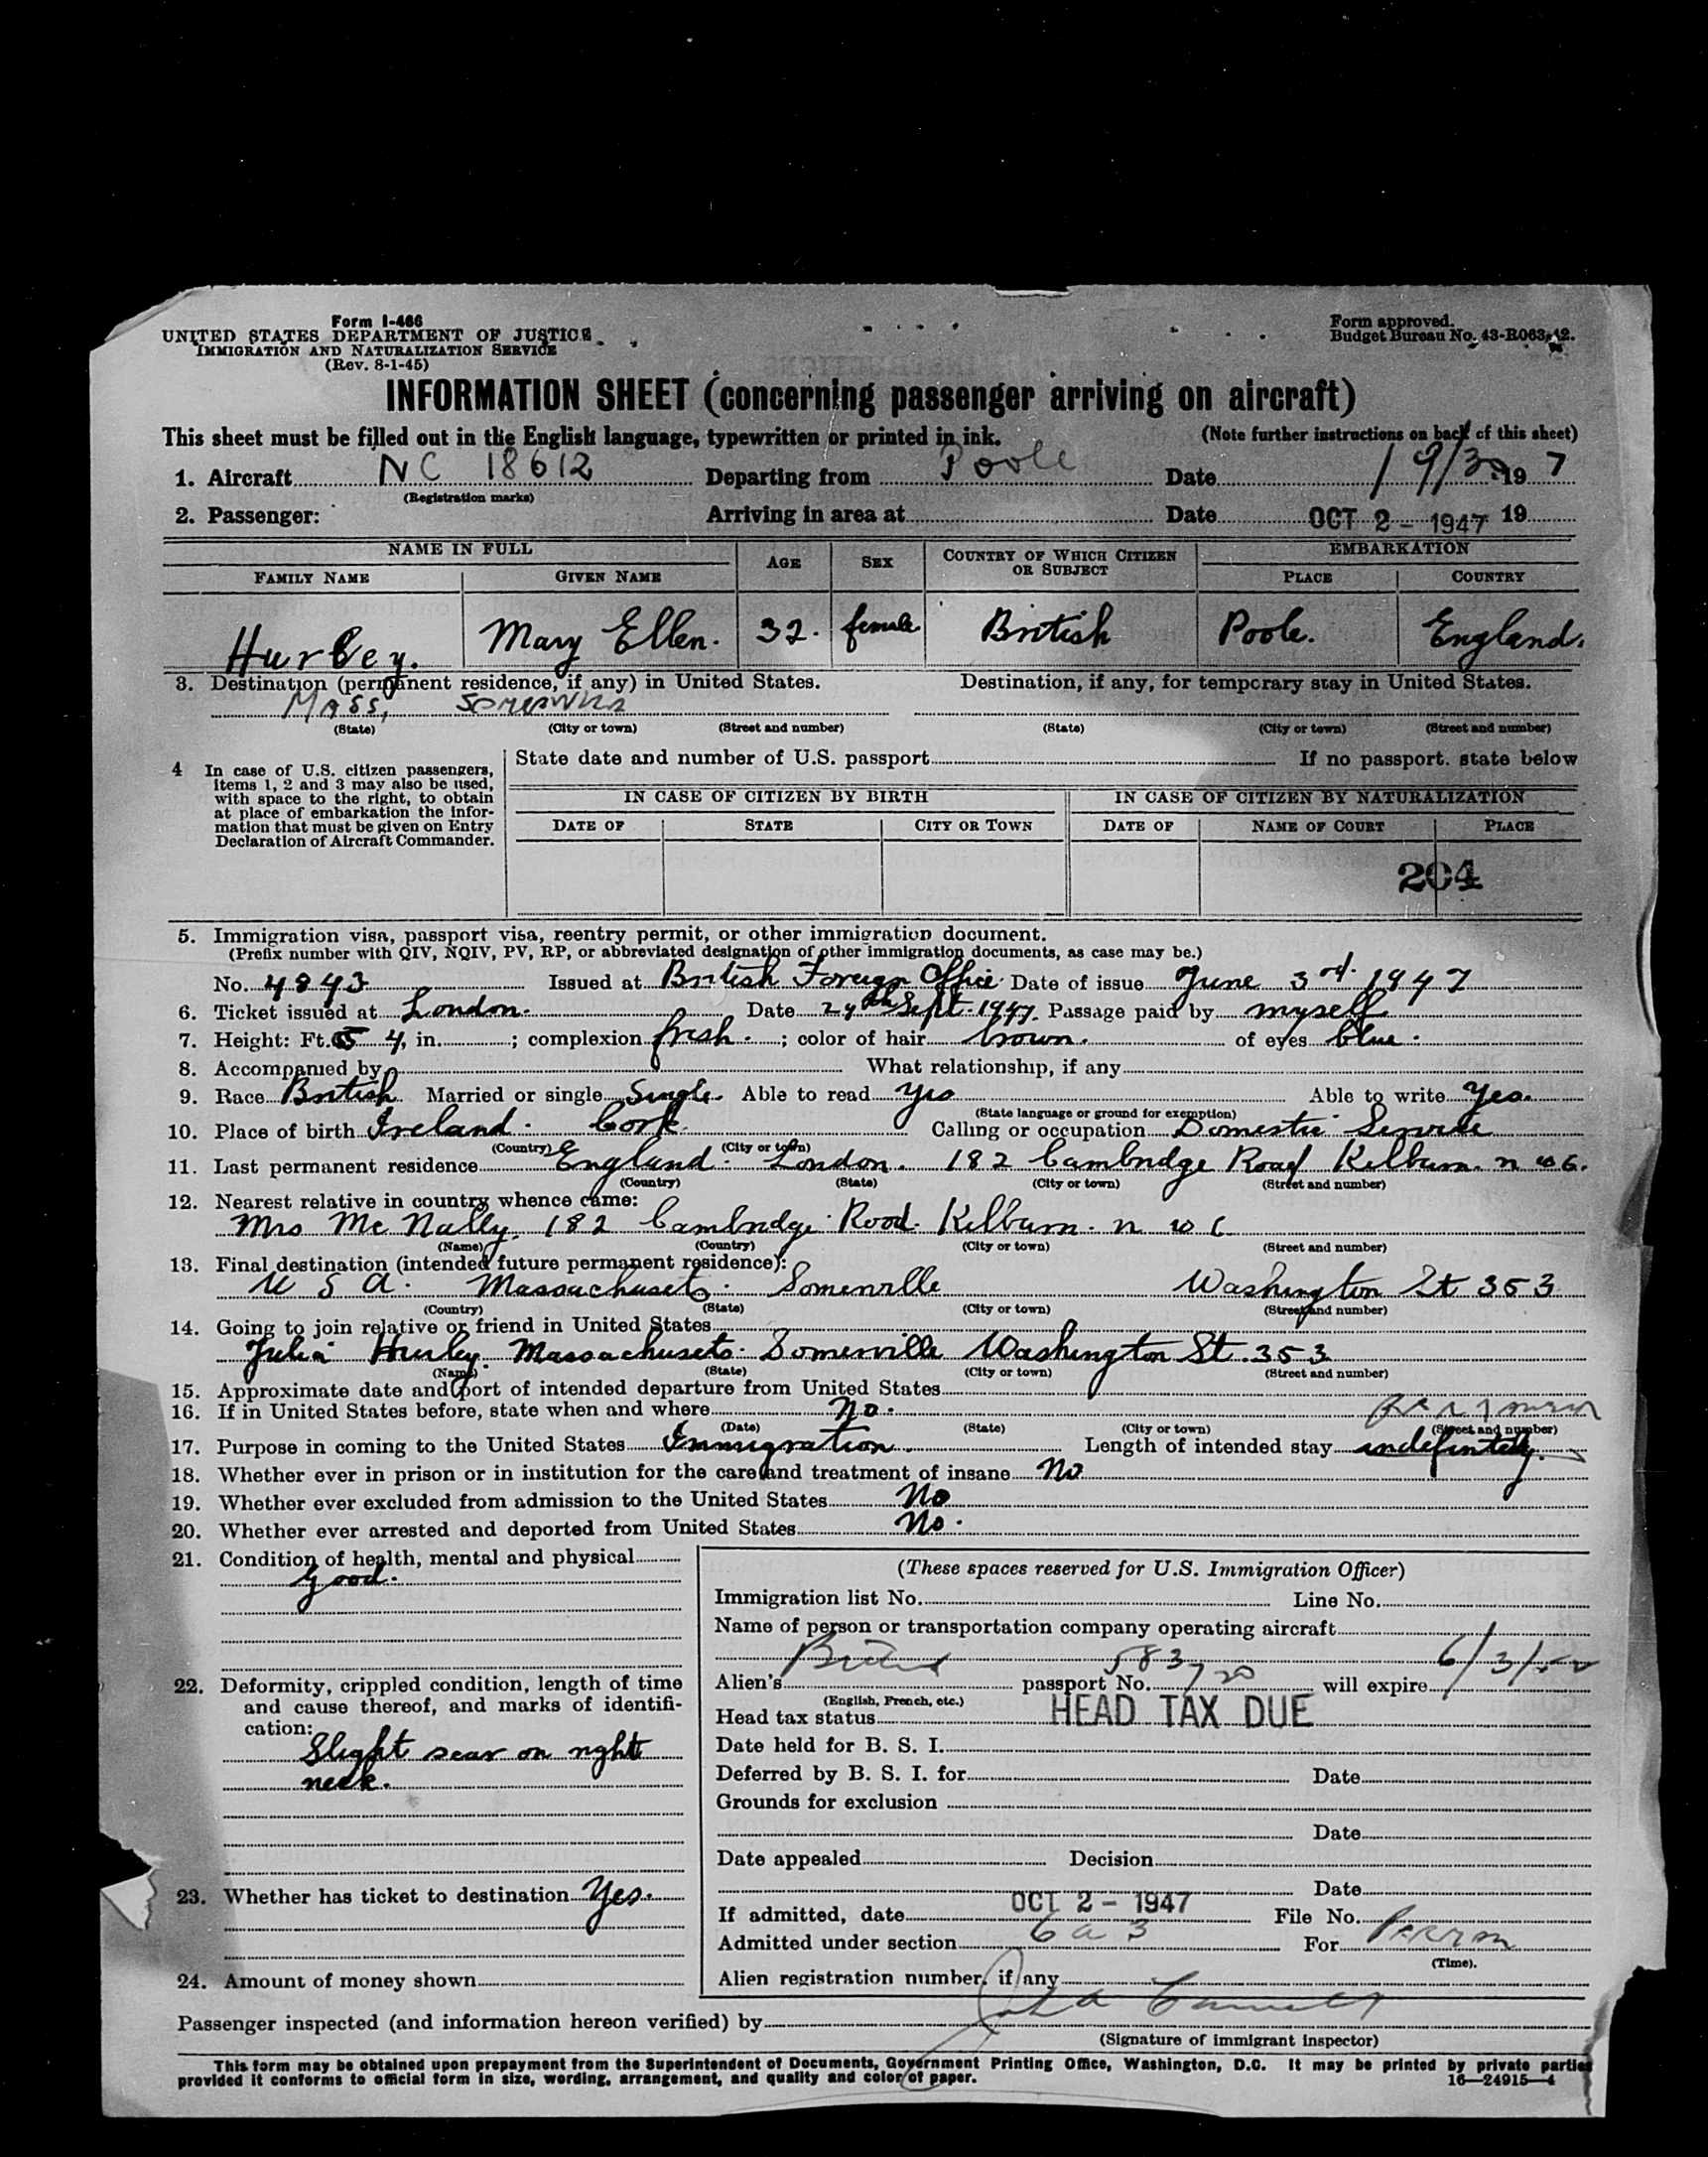 Form I-466
UNITED STATES DEPARTMENT OF JUSTICE
IMMIGRATION AND NATURALIZATION SERVICE
(Rev. 8-1-45)
Form approved.
Budget Bureau No. 43-R063.12.
INFORMATION SHEET (concerning passenger arriving on aircraft)
This sheet must be filled out in the English language, typewritten or printed in ink. (Note further instructions on back of this sheet)
1. Aircraft NC 18612 Departing from Poole Date 19 7
(Registration marks)
2. Passenger: Arriving in area at Date OCT 2 - 1947 19
NAME IN FULL AGE SEX COUNTRY OF WHICH CITIZEN OR SUBJECT EMBARKATION
FAMILY NAME GIVEN NAME PLACE COUNTRY
Hurley. Mary Ellen. 32. female British Poole. England.
3. Destination (permanent residence, if any) in United States. Destination, if any, for temporary stay in United States.
Mass,
(State) (City or town) (Street and number) (State) (City or town) (Street and number)
4 In case of U.S. citizen passengers, items 1, 2 and 3 may also be used, with space to the right, to obtain at place of embarkation the information that must be given on Entry Declaration of Aircraft Commander.
State date and number of U.S. passport If no passport. state below
IN CASE OF CITIZEN BY BIRTH IN CASE OF CITIZEN BY NATURALIZATION
DATE OF STATE CITY OR TOWN DATE OF NAME OF COURT PLACE
204
5. Immigration visa, passport visa, reentry permit, or other immigration document.
(Prefix number with QIV, NQIV, PV, RP, or abbreviated designation of other immigration documents, as case may be.)
No. 4843 Issued at British Foreign Office. Date of issue June 3rd. 1947
6. Ticket issued at London. Date 24th Sept. 1947. Passage paid by myself
7. Height: Ft. 5 4, in. ; complexion fresh. ; color of hair brown. of eyes blue.
8. Accompanied by What relationship, if any
9. Race British Married or single Single. Able to read yes Able to write yes.
(State language or ground for exemption)
10. Place of birth Ireland. Cork Calling or occupation Domestic Service
(Country) (City or town)
11. Last permanent residence England. London. 182 Cambridge Road Kilburn. n w 6.
(Country) (State) (City or town) (Street and number)
12. Nearest relative in country whence came:
Mrs Mc Nally. 182 Cambridge Road. Kilburn. n w 6
(Name) (Country) (City or town) (Street and number)
13. Final destination (intended future permanent residence):
U S A. Massachusets. Somerville Washington St 353
(Country) (State) (City or town) (Street and number)
14. Going to join relative or friend in United States
Julia Hurley. Massachusets. Somerville Washington St. 353
(Name) (State) (City or town) (Street and number)
15. Approximate date and port of intended departure from United States
16. If in United States before, state when and where No.
(Date) (State) (City or town) (Street and number)
17. Purpose in coming to the United States Immigration. Length of intended stay indefintely.
18. Whether ever in prison or in institution for the care and treatment of insane No
19. Whether ever excluded from admission to the United States No
20. Whether ever arrested and deported from United States No.
21. Condition of health, mental and physical
Good.
22. Deformity, crippled condition, length of time and cause thereof, and marks of identification:
Slight scar on right
neck.
23. Whether has ticket to destination Yes.
24. Amount of money shown
(These spaces reserved for U.S. Immigration Officer)
Immigration list No. Line No.
Name of person or transportation company operating aircraft
Alien's passport No. 583720 will expire 6/3/52
(English, French, etc.)
Head tax status HEAD TAX DUE
Date held for B. S. I.
Deferred by B. S. I. for Date
Grounds for exclusion
Date
Date appealed Decision
Date
If admitted, date OCT 2 - 1947 File No.
Admitted under section 6 a 3 For
(Time).
Alien registration number, if any
Passenger inspected (and information hereon verified) by
(Signature of immigrant inspector)
This form may be obtained upon prepayment from the Superintendent of Documents, Government Printing Office, Washington, D.C. It may be printed by private parties
provided it conforms to official form in size, wording, arrangement, and quality and color of paper. 16—24915—4